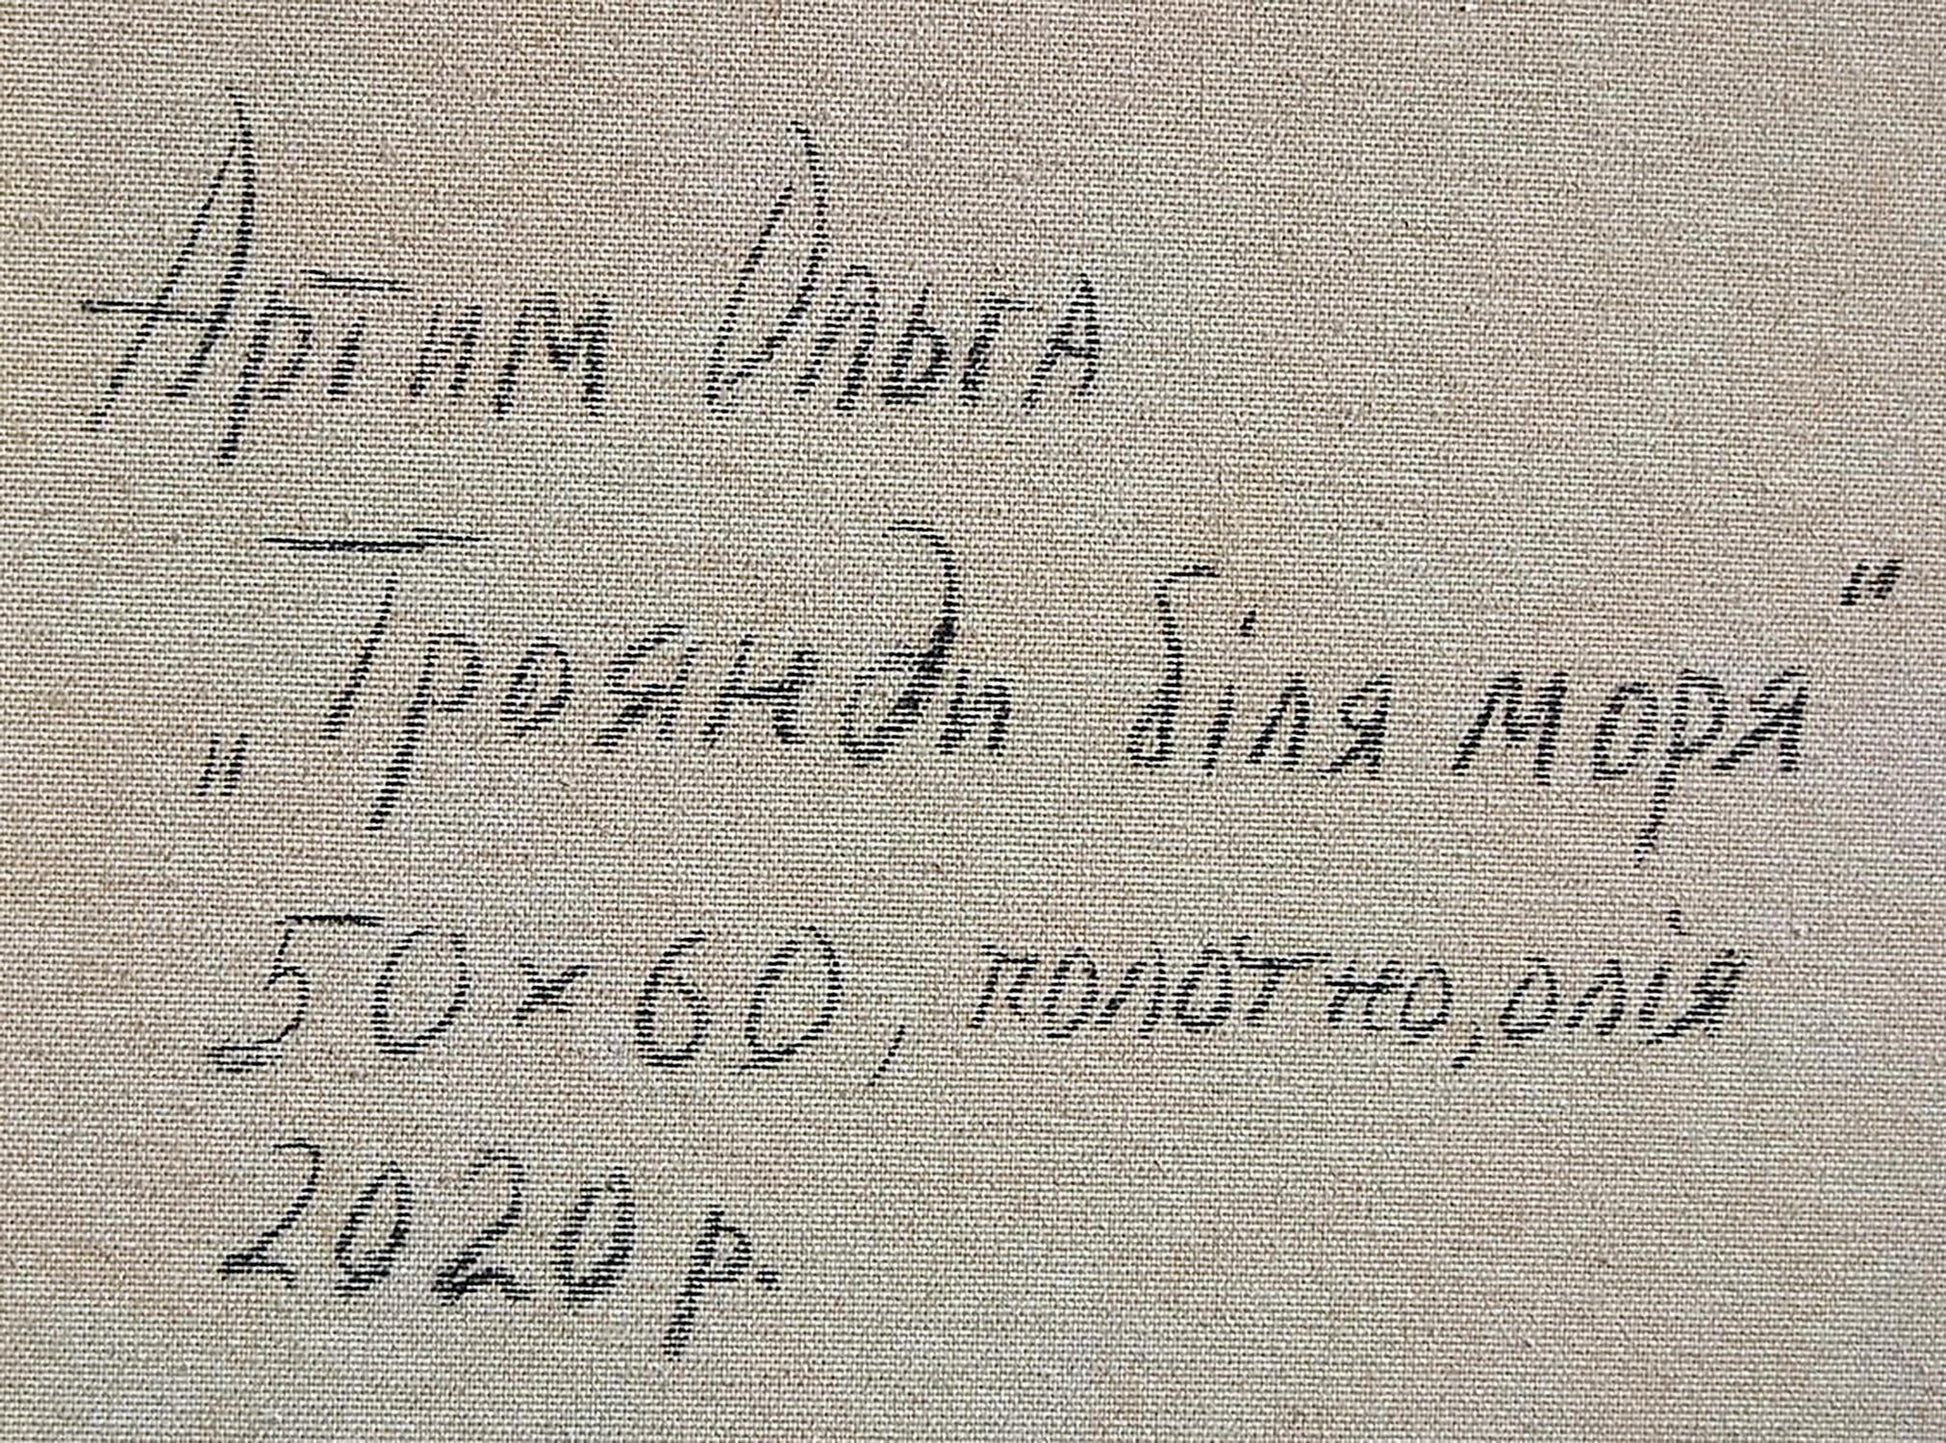 Артим Ольга
„Троянди біля моря"
50×60, полотно, олія
2020 р.